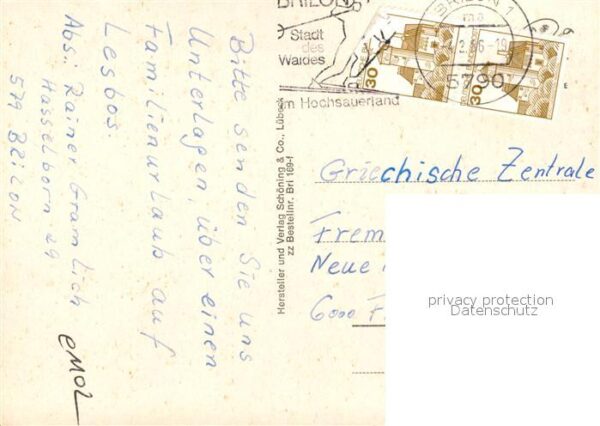 Bitte senden Sie uns
Unterlagen, über einen
Familienurlaub auf
Lesbos.
Abs.: Rainer Gramlich
Hasselborn 29
579 BRILON
Hersteller und Verlag Schöning & Co., Lübeck
zz Bestellnr. Bri 169-f
BRILON
Stadt
des
Waldes
im Hochsauerland
BRILON 1
5790
30
30
Griechische Zentrale
Frem
Neue
6000 F
privacy protection
Datenschutz